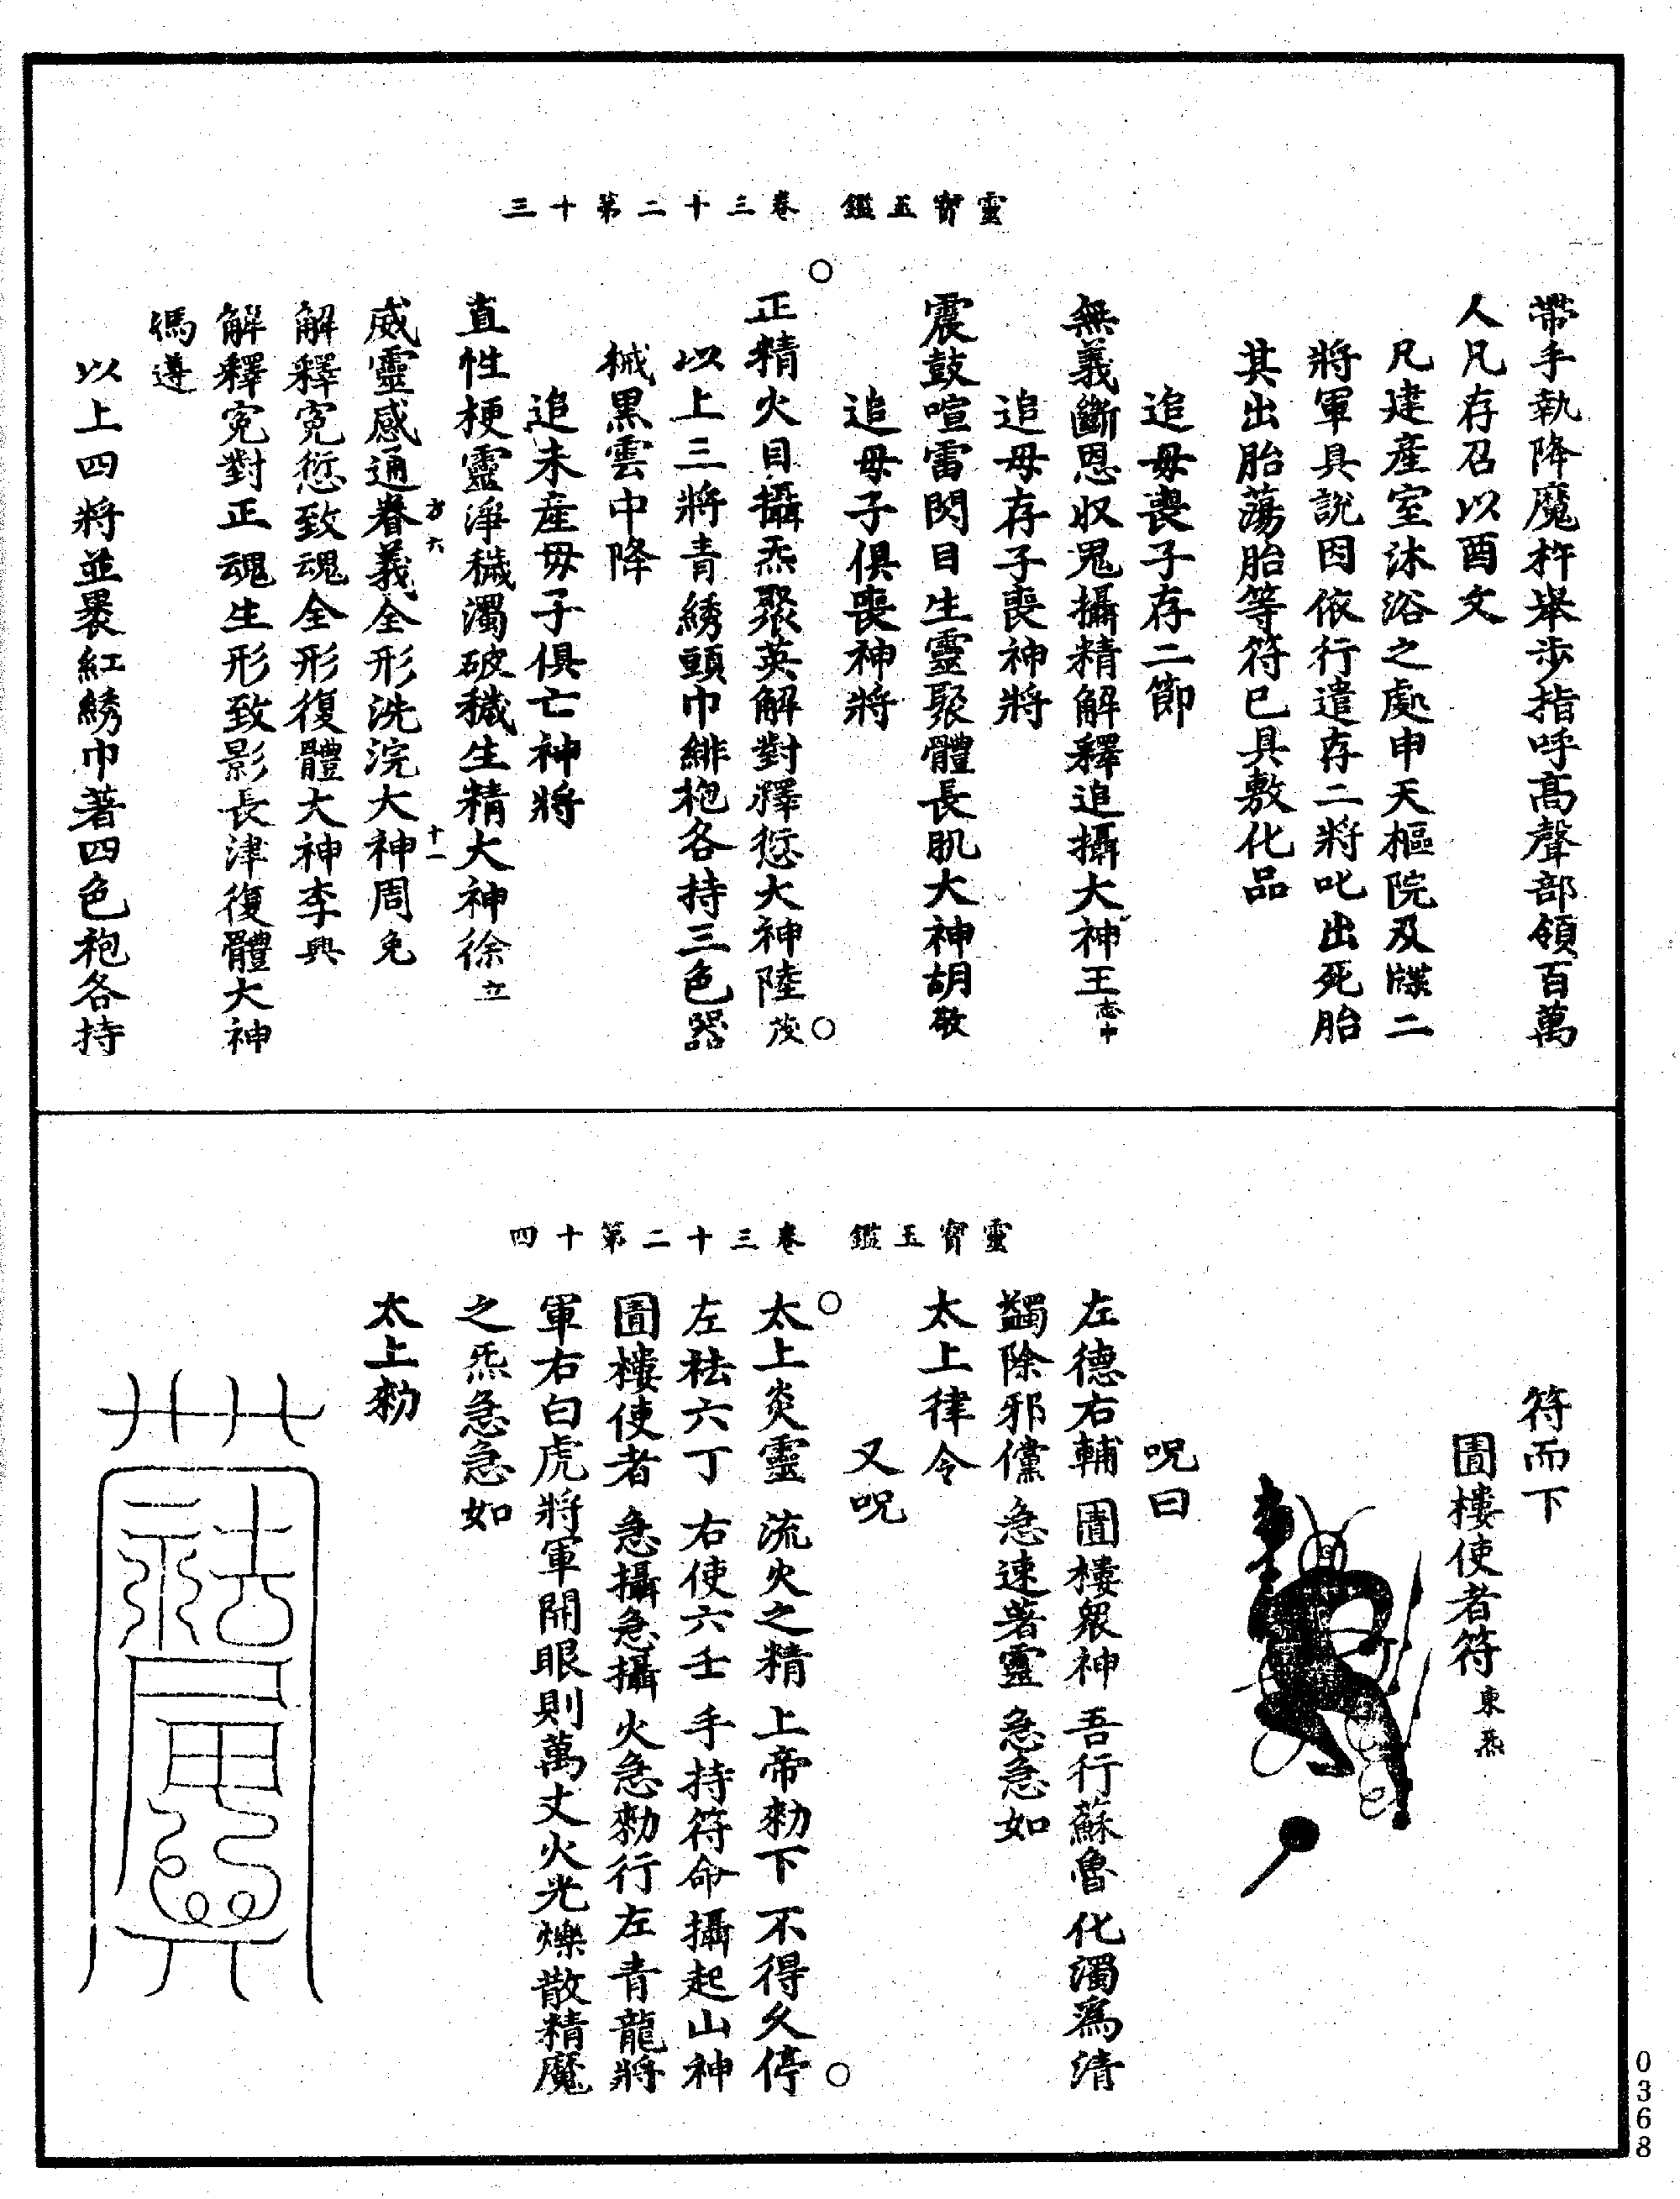 靈寳玉鑑 卷三十二第十三
帶手執降魔杵舉步指呼高聲部領百萬
人凡存召以酉文
凡建產室沐浴之處申天樞院及牒二
將軍具說因依行遣存二將叱出死胎
其出胎蕩胎等符已具敷化品
追母喪子存二節
無義斷恩收冤攝精解釋追攝大神王志十
追母存子喪神將
震鼓喧雷閃目生靈聚體長肌大神胡敬
追母子俱喪神將
正精火目攝炁聚英解對釋愆大神陸茂
以上三將青綉頭巾緋袍各持三色器
械黑雲中降
追未産毋子俱亡神將
直性梗靈淨穢濁破穢生精大神徐立
威靈感通眷義全形洗浣大神周免
方六
十一
解釋寃愆致魂全形復體大神李興
解釋寃對正魂生形致影長津復體大神
馮遵
以上四將並裹紅綉巾著四色袍各持
靈寳玉鑑 卷三十二第十四
符而下
圊樓使者符東炁
呪曰
左德右輔 圊樓眾神 吾行蘇魯 化濁爲清
蠲除邪儻 急速著靈 急急如
太上律令
又呪
太上炎靈 流火之精 上帝勑下 不得久停
左祛六丁 右使六壬 手持符命 攝起山神
圊樓使者 急攝急攝 火急勑行左青龍將
軍右白虎將軍開眼則萬丈火光爍散精魔
之炁急急如
太上勑
0368